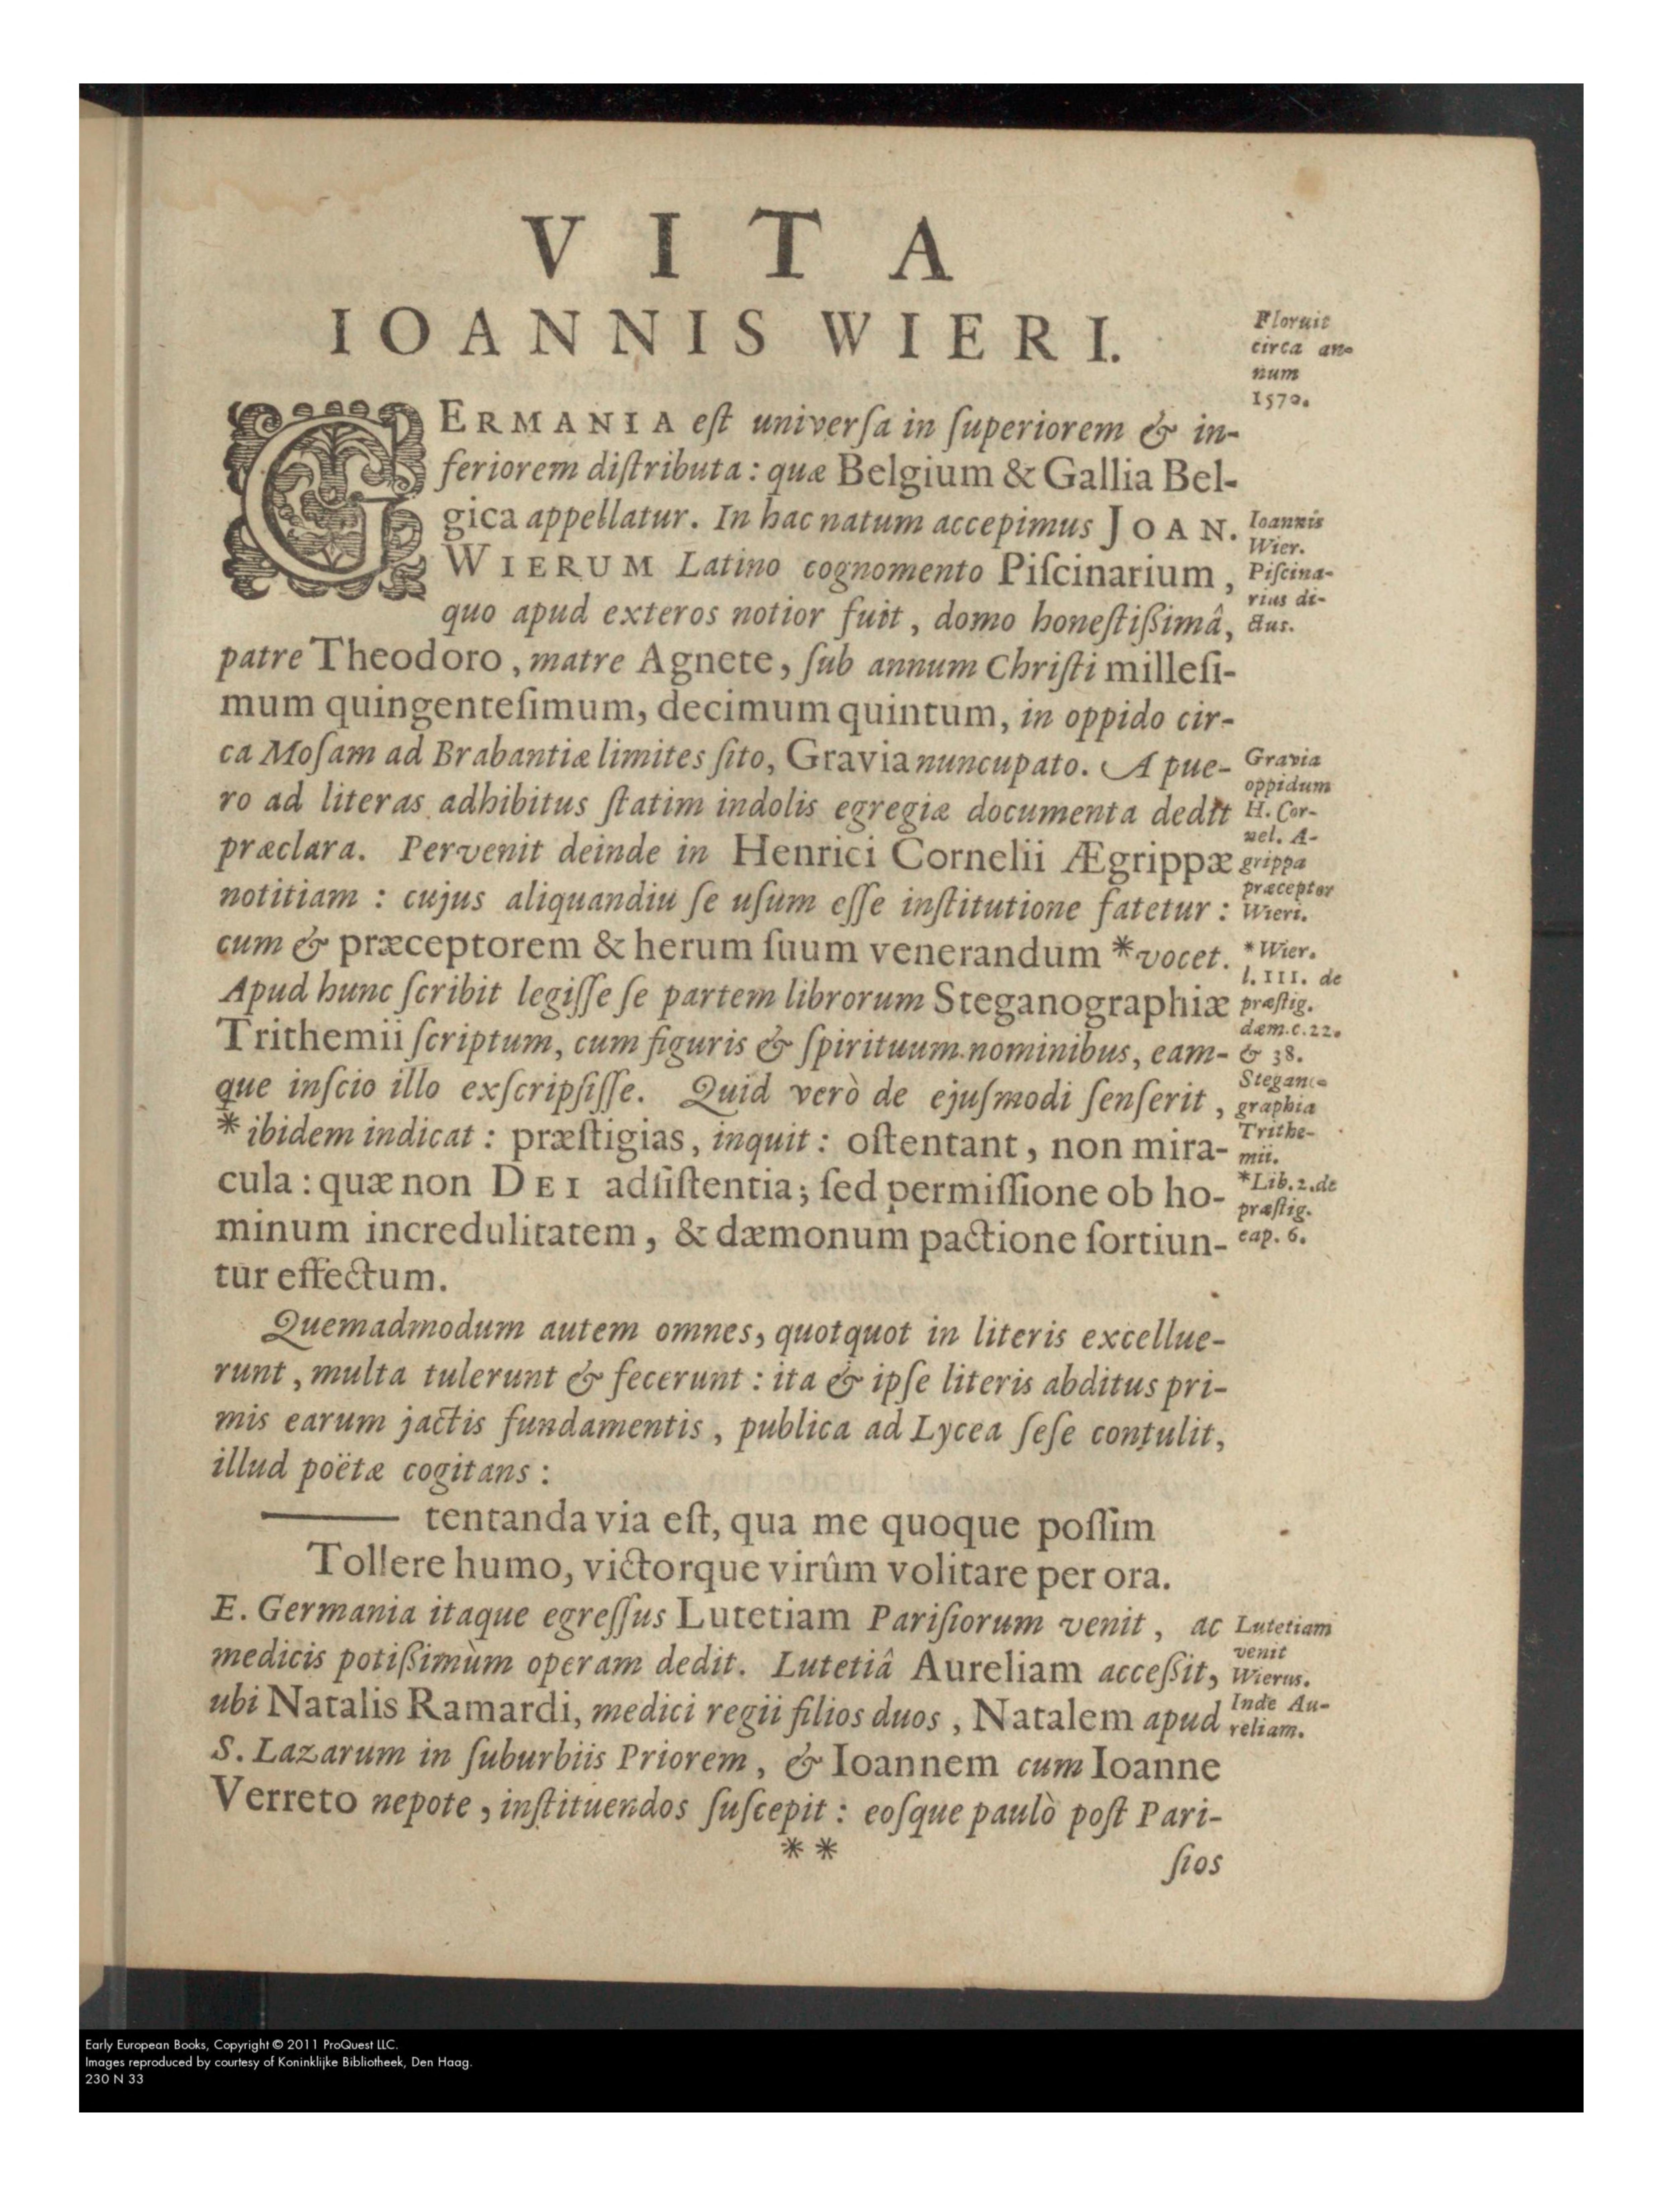 VITA
IOANNIS WIERI.
Floruit
circa an-
num
1570.
GERMANIA eſt univerſa in ſuperiorem & in-
feriorem diſtributa : quæ Belgium & Gallia Bel-
gica appellatur. In hac natum accepimus JOAN.
WIERUM Latino cognomento Piſcinarium ,
quo apud exteros notior fuit , domo honeſtißimâ,
Ioannis
Wier.
Piſcina-
rius di-
ctus.
patre Theodoro , matre Agnete, ſub annum Chriſti milleſi-
mum quingenteſimum, decimum quintum, in oppido cir-
ca Moſam ad Brabantiæ limites ſito, Gravia nuncupato. A pue-
ro ad literas adhibitus ſtatim indolis egregiæ documenta dedit
præclara. Pervenit deinde in Henrici Cornelii Ægrippæ
notitiam : cujus aliquandiu ſe uſum eſſe inſtitutione fatetur :
Gravia
oppidum
H. Cor-
nel. A-
grippa
præceptor
Wieri.
cum & præceptorem & herum ſuum venerandum *vocet.
Apud hunc ſcribit legiſſe ſe partem librorum Steganographiæ
Trithemii ſcriptum, cum figuris & ſpirituum nominibus, eam-
que inſcio illo exſcripſiſſe. Quid verò de ejuſmodi ſenſerit ,
* ibidem indicat : præſtigias, inquit : oſtentant , non mira-
cula : quæ non DEI adſiſtentia; ſed permiſſione ob ho-
minum incredulitatem , & dæmonum pactione ſortiun-
tur effectum.
* Wier.
l. III. de
præſtig.
dæm. c. 22.
& 38.
Stegano-
graphia
Trithe-
mii.
*Lib. 2. de
præſtig.
cap. 6.
Quemadmodum autem omnes, quotquot in literis excellue-
runt , multa tulerunt & fecerunt : ita & ipſe literis abditus pri-
mis earum jactis fundamentis , publica ad Lycea ſeſe contulit,
illud poëtæ cogitans :
——— tentanda via eſt, qua me quoque poſſim
Tollere humo, victorque virûm volitare per ora.
E. Germania itaque egreſſus Lutetiam Pariſiorum venit , ac
medicis potißimùm operam dedit. Lutetiâ Aureliam acceßit,
ubi Natalis Ramardi, medici regii filios duos , Natalem apud
S. Lazarum in ſuburbiis Priorem , & Ioannem cum Ioanne
Verreto nepote , inſtituendos ſuſcepit : eoſque paulò poſt Pari-
Lutetiam
venit
Wierus.
Inde Au-
reliam.
* *
ſios
Early European Books, Copyright © 2011 ProQuest LLC.
Images reproduced by courtesy of Koninklijke Bibliotheek, Den Haag.
230 N 33